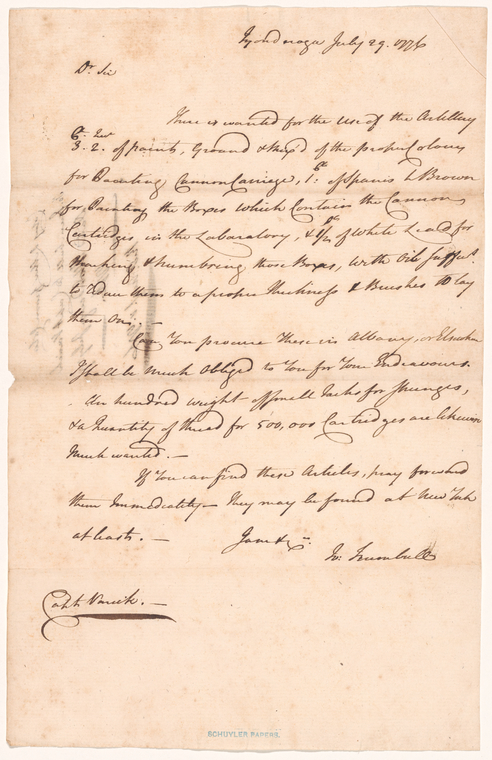 Tyonderoga July 29. 1776
Dr Sir
There is wanted for the Use of the Artillery
Ct. Qur
3. 2. of paints, Ground & Mix'd of the proper Colours
for Painting Cannon Carriage, 1. Ct of Spanish Brown
for Painting the Boxes which Contain the Cannon
Cartridges, in the Laboratory, & 1/2 Ct of White Lead for
Marking & Numbring those Boxes, with Oil suffict
to reduce them to a proper thickness & Brushes to lay
them on; —
Can You procure these in Albany, or Elsewhere
I shall be Much Obliged to You for Your Endeavours.
An hundred weight of Small Tacks for Spunges,
& a Quantity of thread for 500,000 Cartridges are likewise
Much wanted. —
If You can find these Articles, pray forward
them Immediately — they may be found at New York
at least. —
I am &c
Jo: Trumbull
Capt Varick. —
SCHUYLER PAPERS.